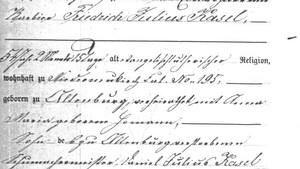 Barbier Friedrich Julius Kasel,
5 Jahr 2 Monate 15 Tage alt, evangelisch lutherischer Religion,
wohnhaft zu Niederneukirch Kat. No. 195,
geboren zu Altenburg, verheirathet mit Anna
Maria geborene Hemann,
Sohn des zu Altenburg verstorbenen
Schuhmachermeister Daniel Julius Kasel